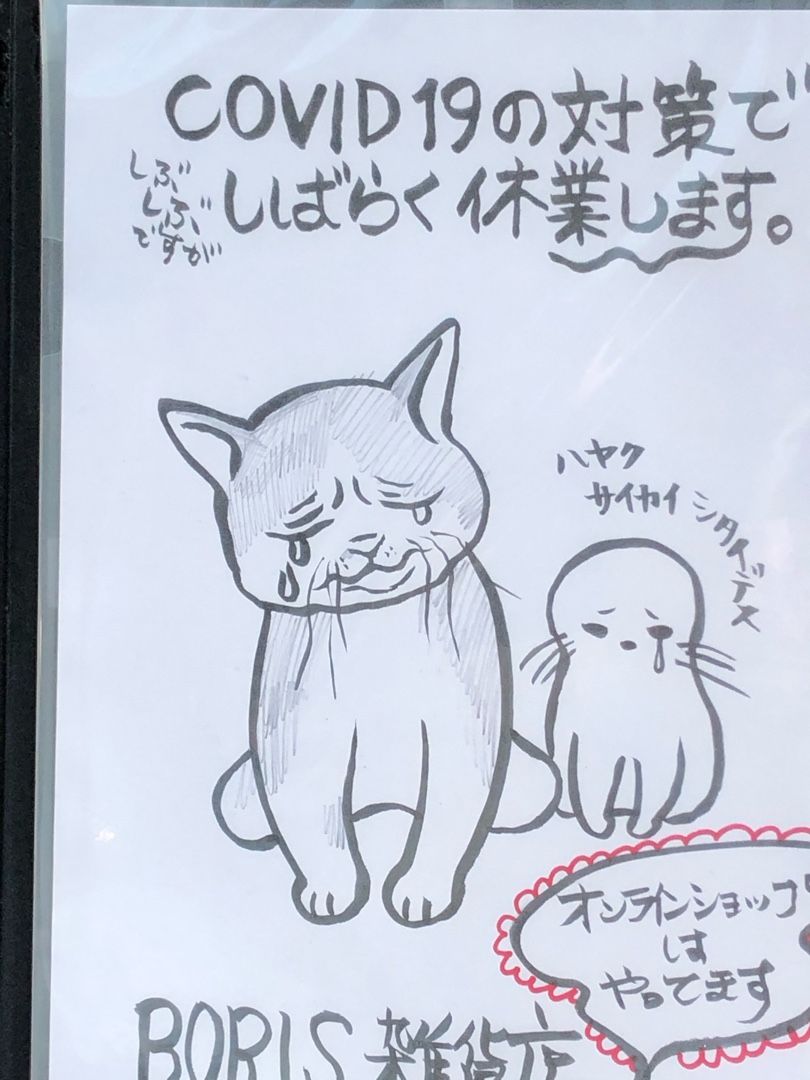 COVID19の対策で
しぶ
しぶ
ですが
しばらく休業します。
ハヤク
サイカイ シタイデス
オンラインショップ
はす
やってます
BORIS 雑貨店